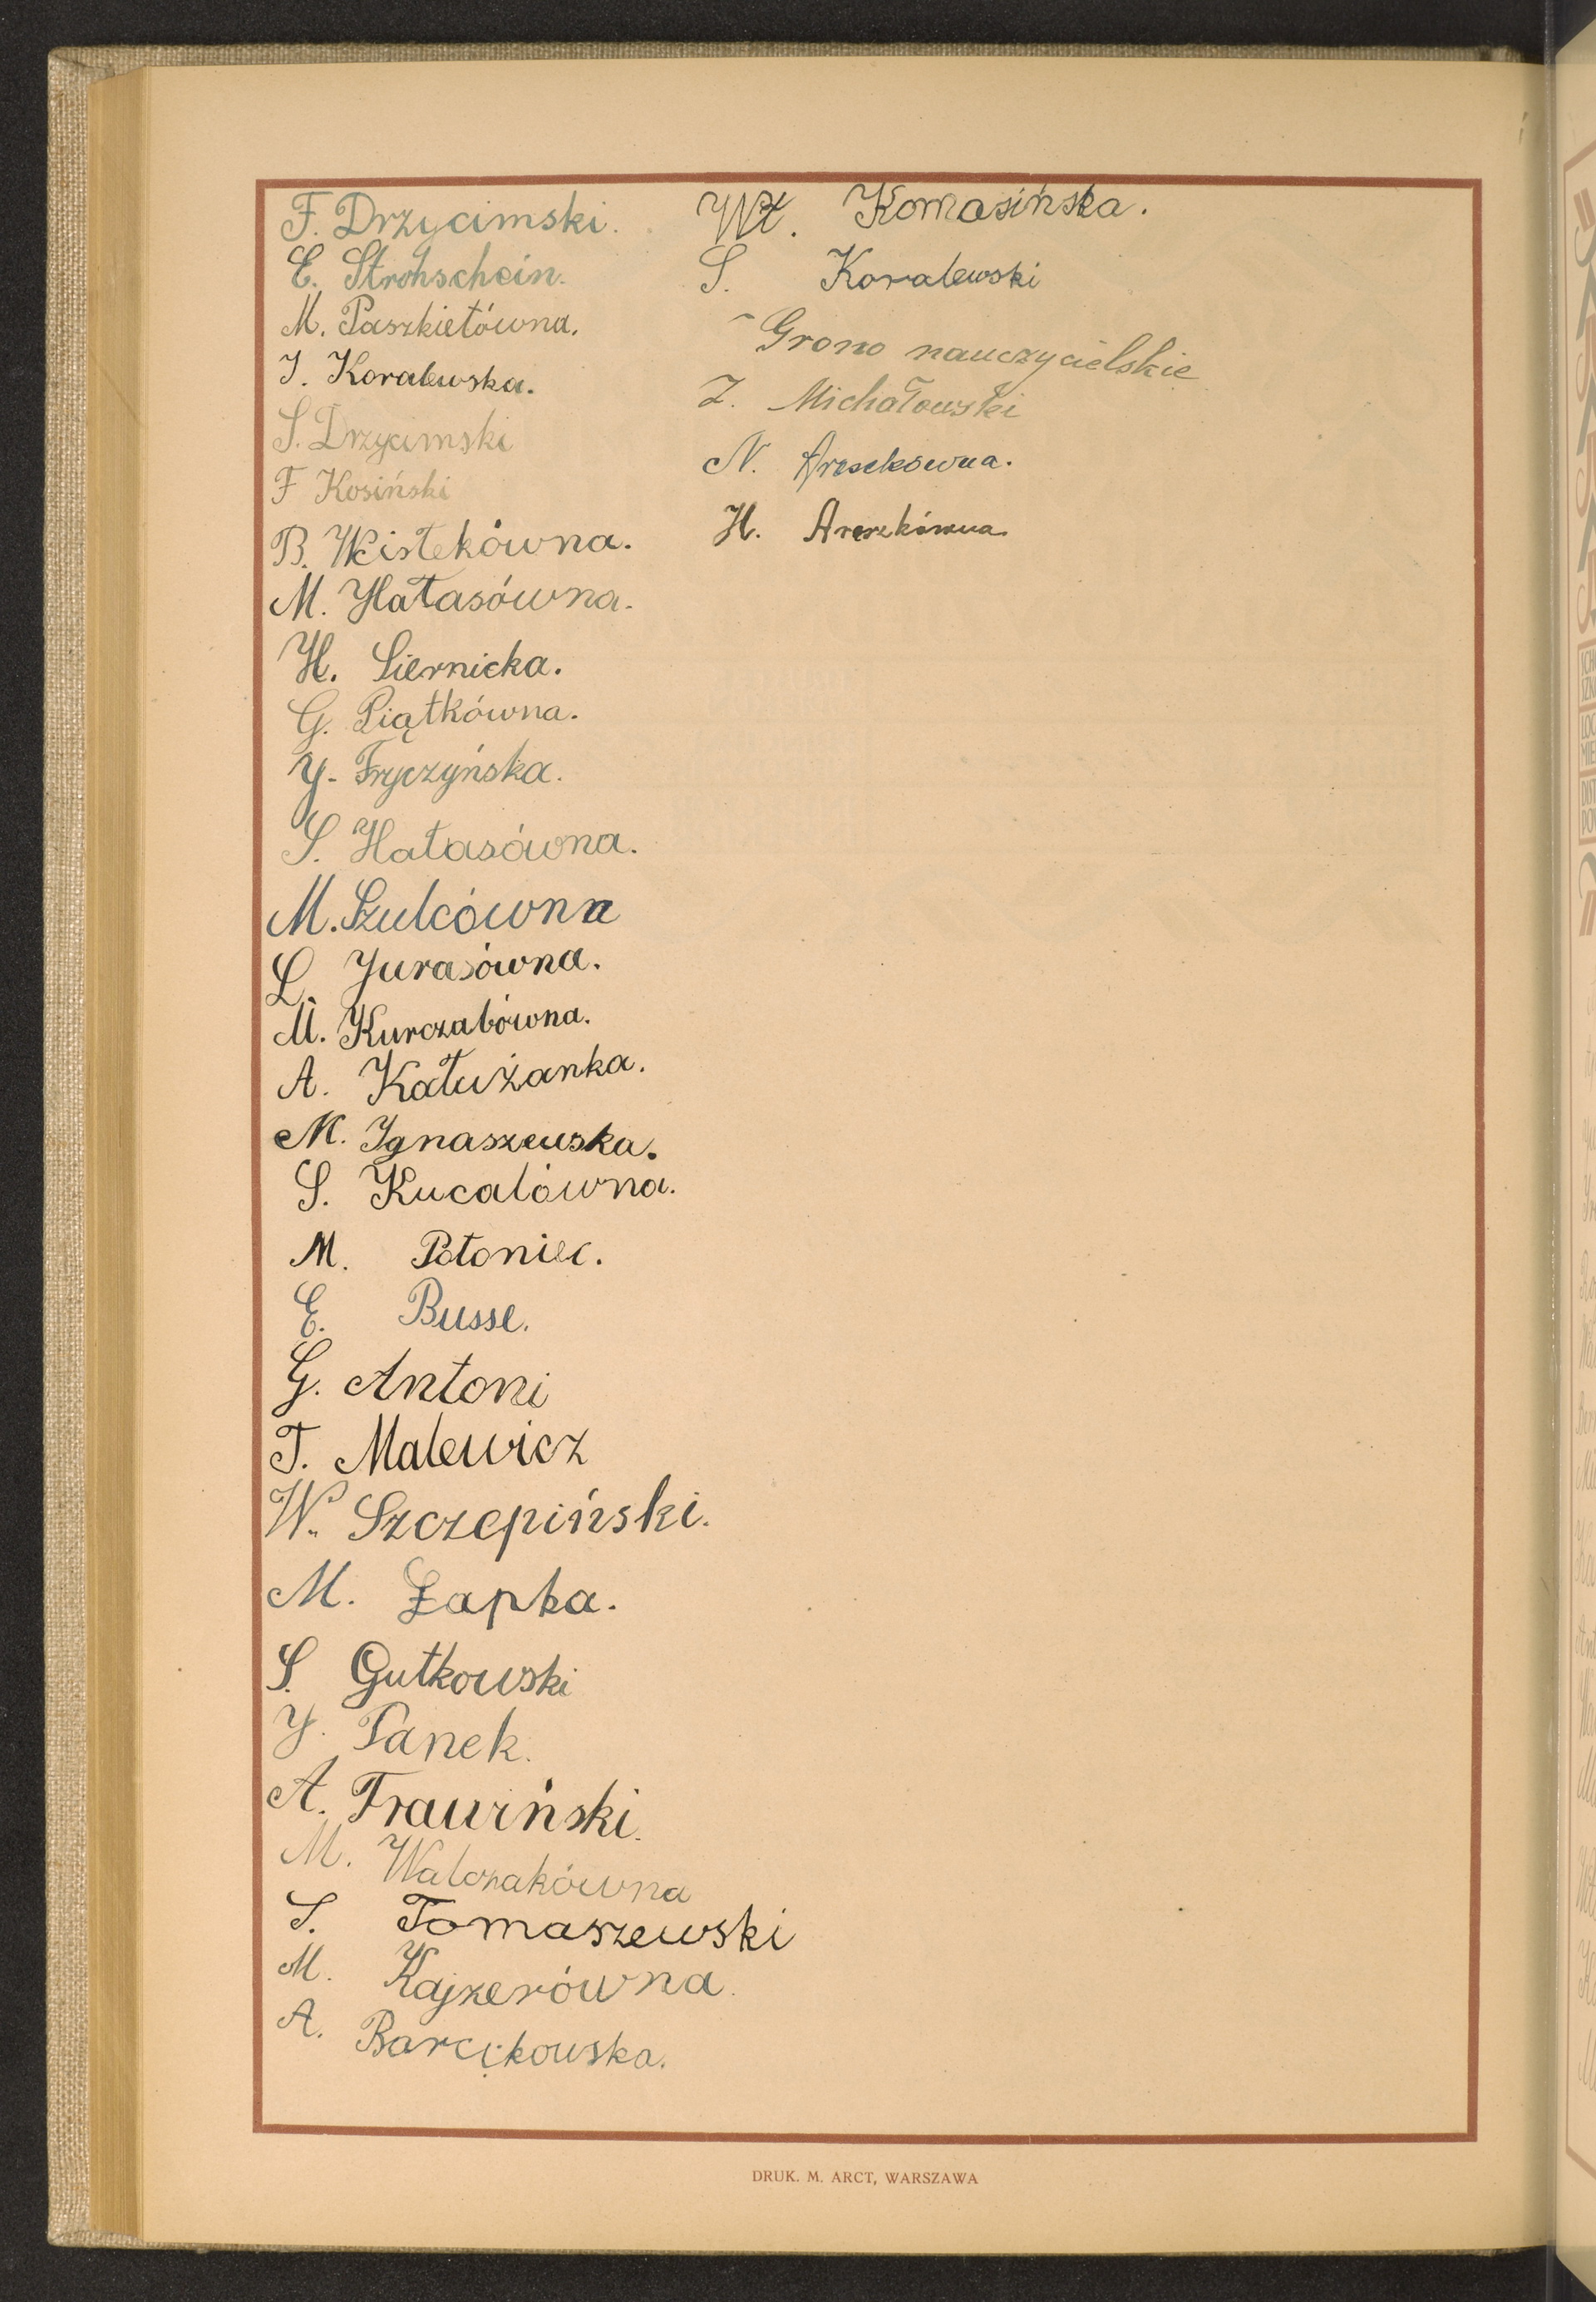 F. Drzycimski.
E. Strohschein.
M. Paszkietówna.
J. Koralewska.
S. Drzycimski
F Kosiński
B. Wcisłekówna.
M. Hałasówna.
H. Siernicka.
G. Piątkówna.
Y. Fryczyńska.
S. Hałasówna.
M. Szulcówna
L. Jurasówna.
M. Kurczabówna.
A. Kałużanka.
M. Ignaszewska.
S. Kucalówna.
M. Połoniec.
E. Busse.
G. Antoni
T. Malewicz
W. Szczepiński.
M. Łapka.
S. Gutkowski
J. Panek.
A. Trawiński.
M. Walczakówna
S. Tomaszewski
M. Kajzerówna.
A. Barcikowska.
Wł. Komasińska.
S. Koralewski
Grono nauczycielskie
Z. Michałowski
N.
H. Areszkówna
DRUK. M. ARCT, WARSZAWA